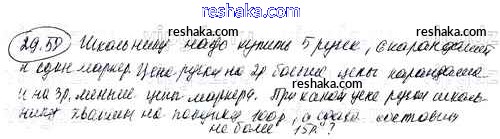 reshaka.ru
29.50 Школьнику надо купить 5 ручек, карандашей
и один маркер. Цена ручки на 2р больше цены карандаша
и на 3р. меньше цены маркера. При какой цене ручки школь-
нику хватит на покупку 100р, а сдача составит
не более 15р?
reshaka.ru
reshaka.ru
reshaka.ru